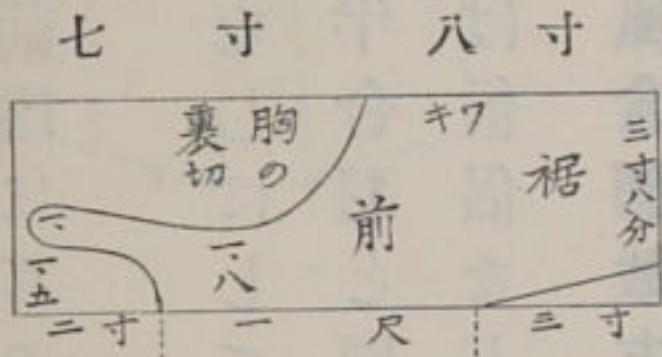 七寸 八寸
胸の
裏切
キワ
裾
三寸八分
前
一、
一、八
一、五
二寸 一尺 三寸